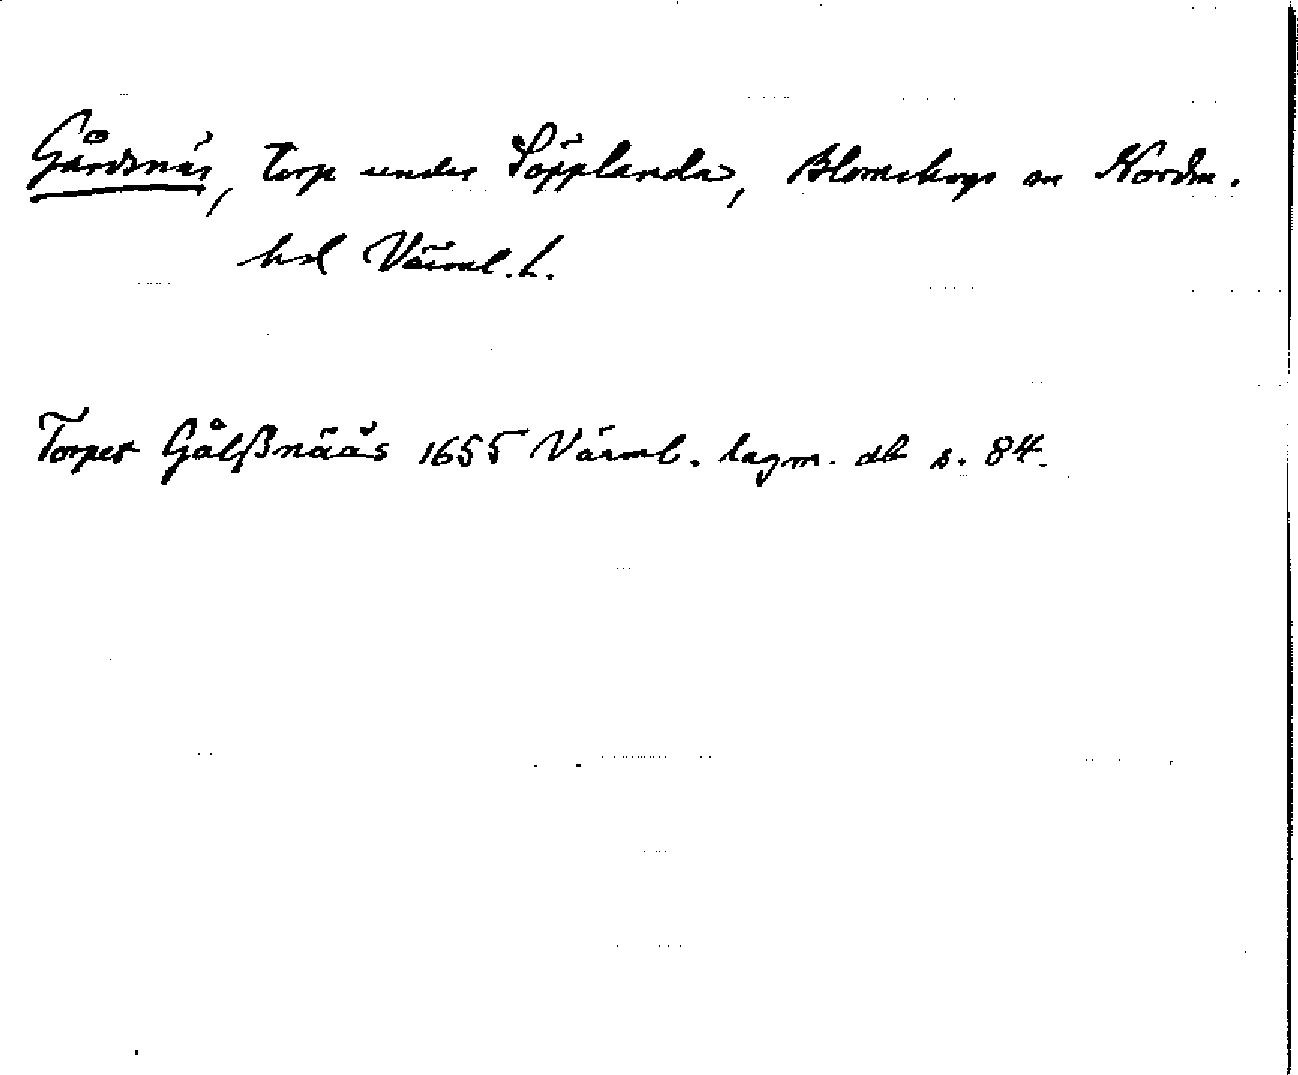 Gårdsnäs, torp under Söpplanda, Blomskogs sn Nordm.
hd Värml. l.
Torpet Gålßnääs 1655 Värml. lagm. db s. 84.